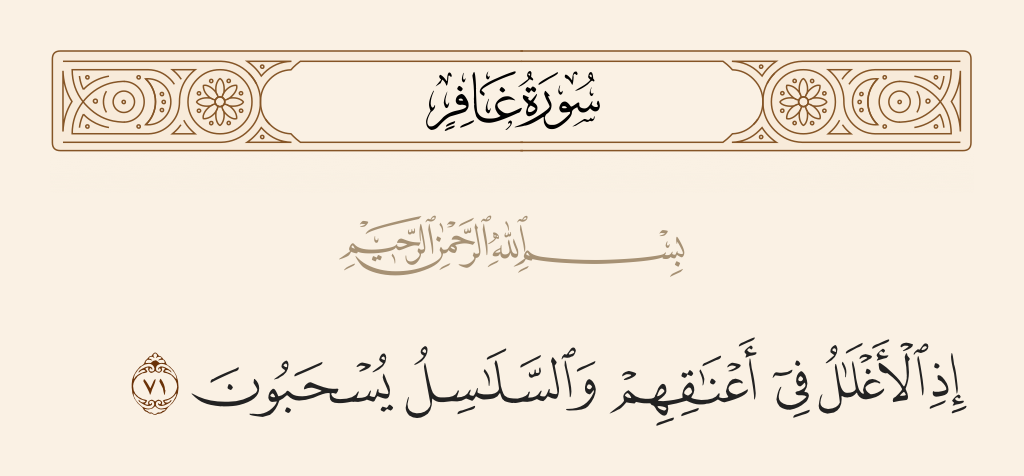 سُورَةُ غَافِرٍ
بِسْمِ ٱللَّهِ ٱلرَّحْمَٰنِ ٱلرَّحِيمِ
إِذِ ٱلْأَغْلَٰلُ فِىٓ أَعْنَٰقِهِمْ وَٱلسَّلَٰسِلُ يُسْحَبُونَ ٧١